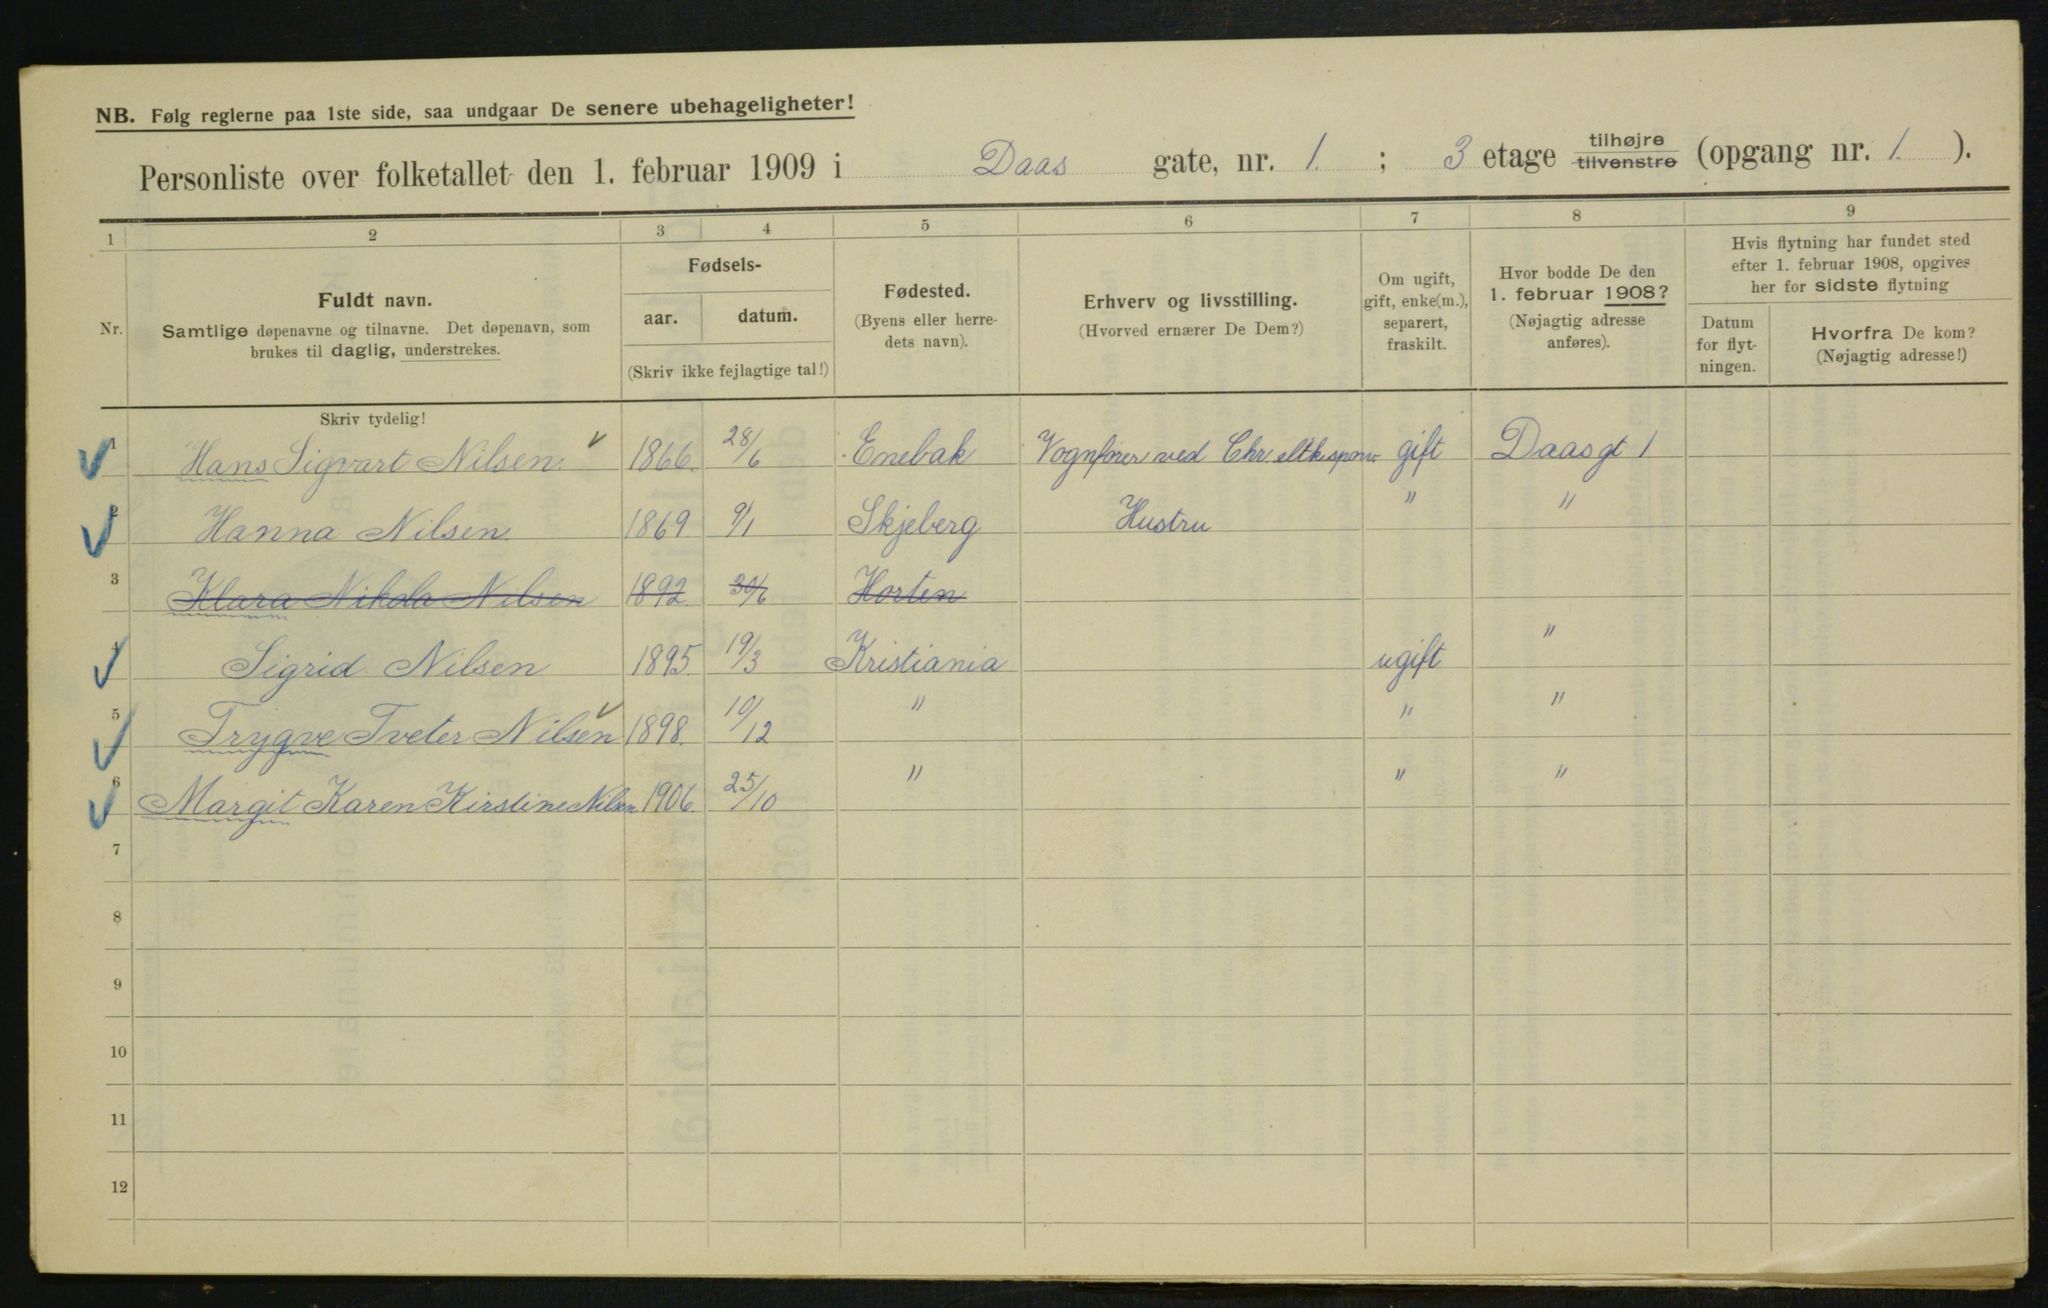 NB. Følg reglerne paa 1ste side, saa undgaar De senere ubehageligheter!
Personliste over folketallet den 1. februar 1909 i Daas gate, nr. 1. ; 3 etage tilhøjre tilvenstre (opgang nr. 1. ).
1 2 3 4 5 6 7 8 9
Nr.
Fuldt navn.
Samtlige døpenavne og tilnavne. Det døpenavn, som
brukes til daglig, understrekes.
Fødsels-
aar. datum.
(Skriv ikke fejlagtige tal!)
Fødested.
(Byens eller herre-
dets navn).
Erhverv og livsstilling.
(Hvorved ernærer De Dem?)
Om ugift,
gift, enke(m.),
separert,
fraskilt.
Hvor bodde De den
1. februar 1908?
(Nøjagtig adresse
anføres).
Hvis flytning har fundet sted
efter 1. februar 1908, opgives
her for sidste flytning
Datum
for flyt-
ningen.
Hvorfra De kom?
(Nøjagtig adresse!)
Skriv tydelig!
1 Hans Sigvart Nilsen. 1866. 28/6 Enebak Vognfører ved Chr. eltk. sporv. gift Daasgt 1
2 Hanna Nilsen. 1869 9/1 Skjeberg Hustru " "
3 Klara Nikola Nilsen 1892 30/6 Horten
4 Sigrid Nilsen 1895. 19/3 Kristiania ugift "
5 Trygve Tveter Nilsen 1898. 10/12 " " "
6 Margit Karen Kirstine Nilsen 1906. 25/10 " " "
7
8
9
10
11
12